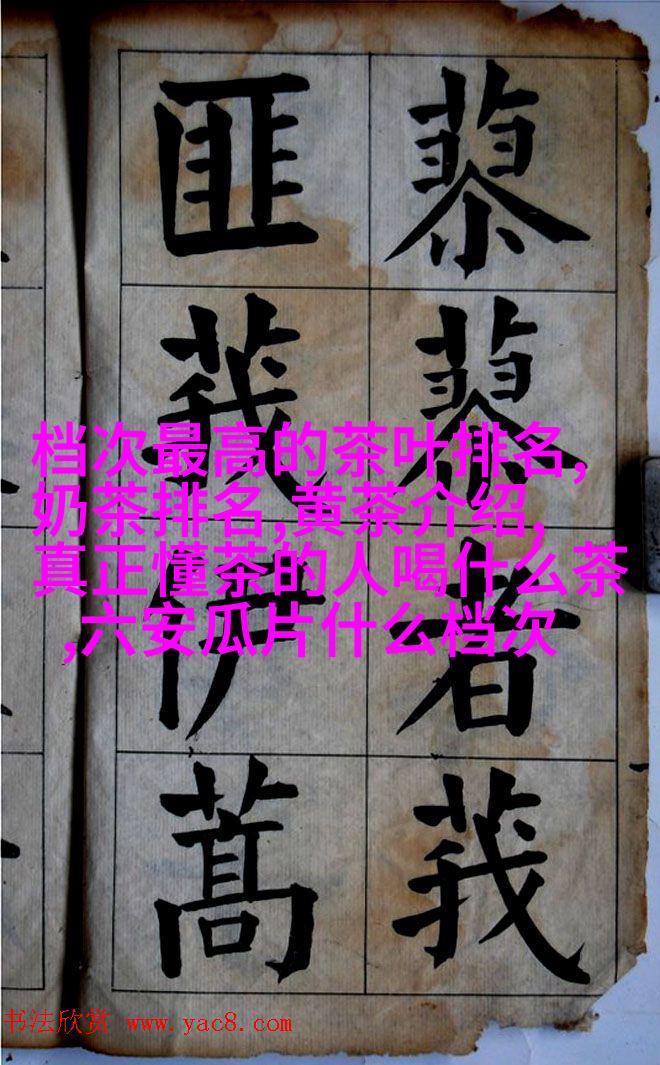 蓼蓼者莪
匪莪伊蒿
档次最高的茶叶排名,
奶茶排名,黄茶介绍,
真正懂茶的人喝什么茶
,六安瓜片什么档次
书法欣赏 www.yac8.com